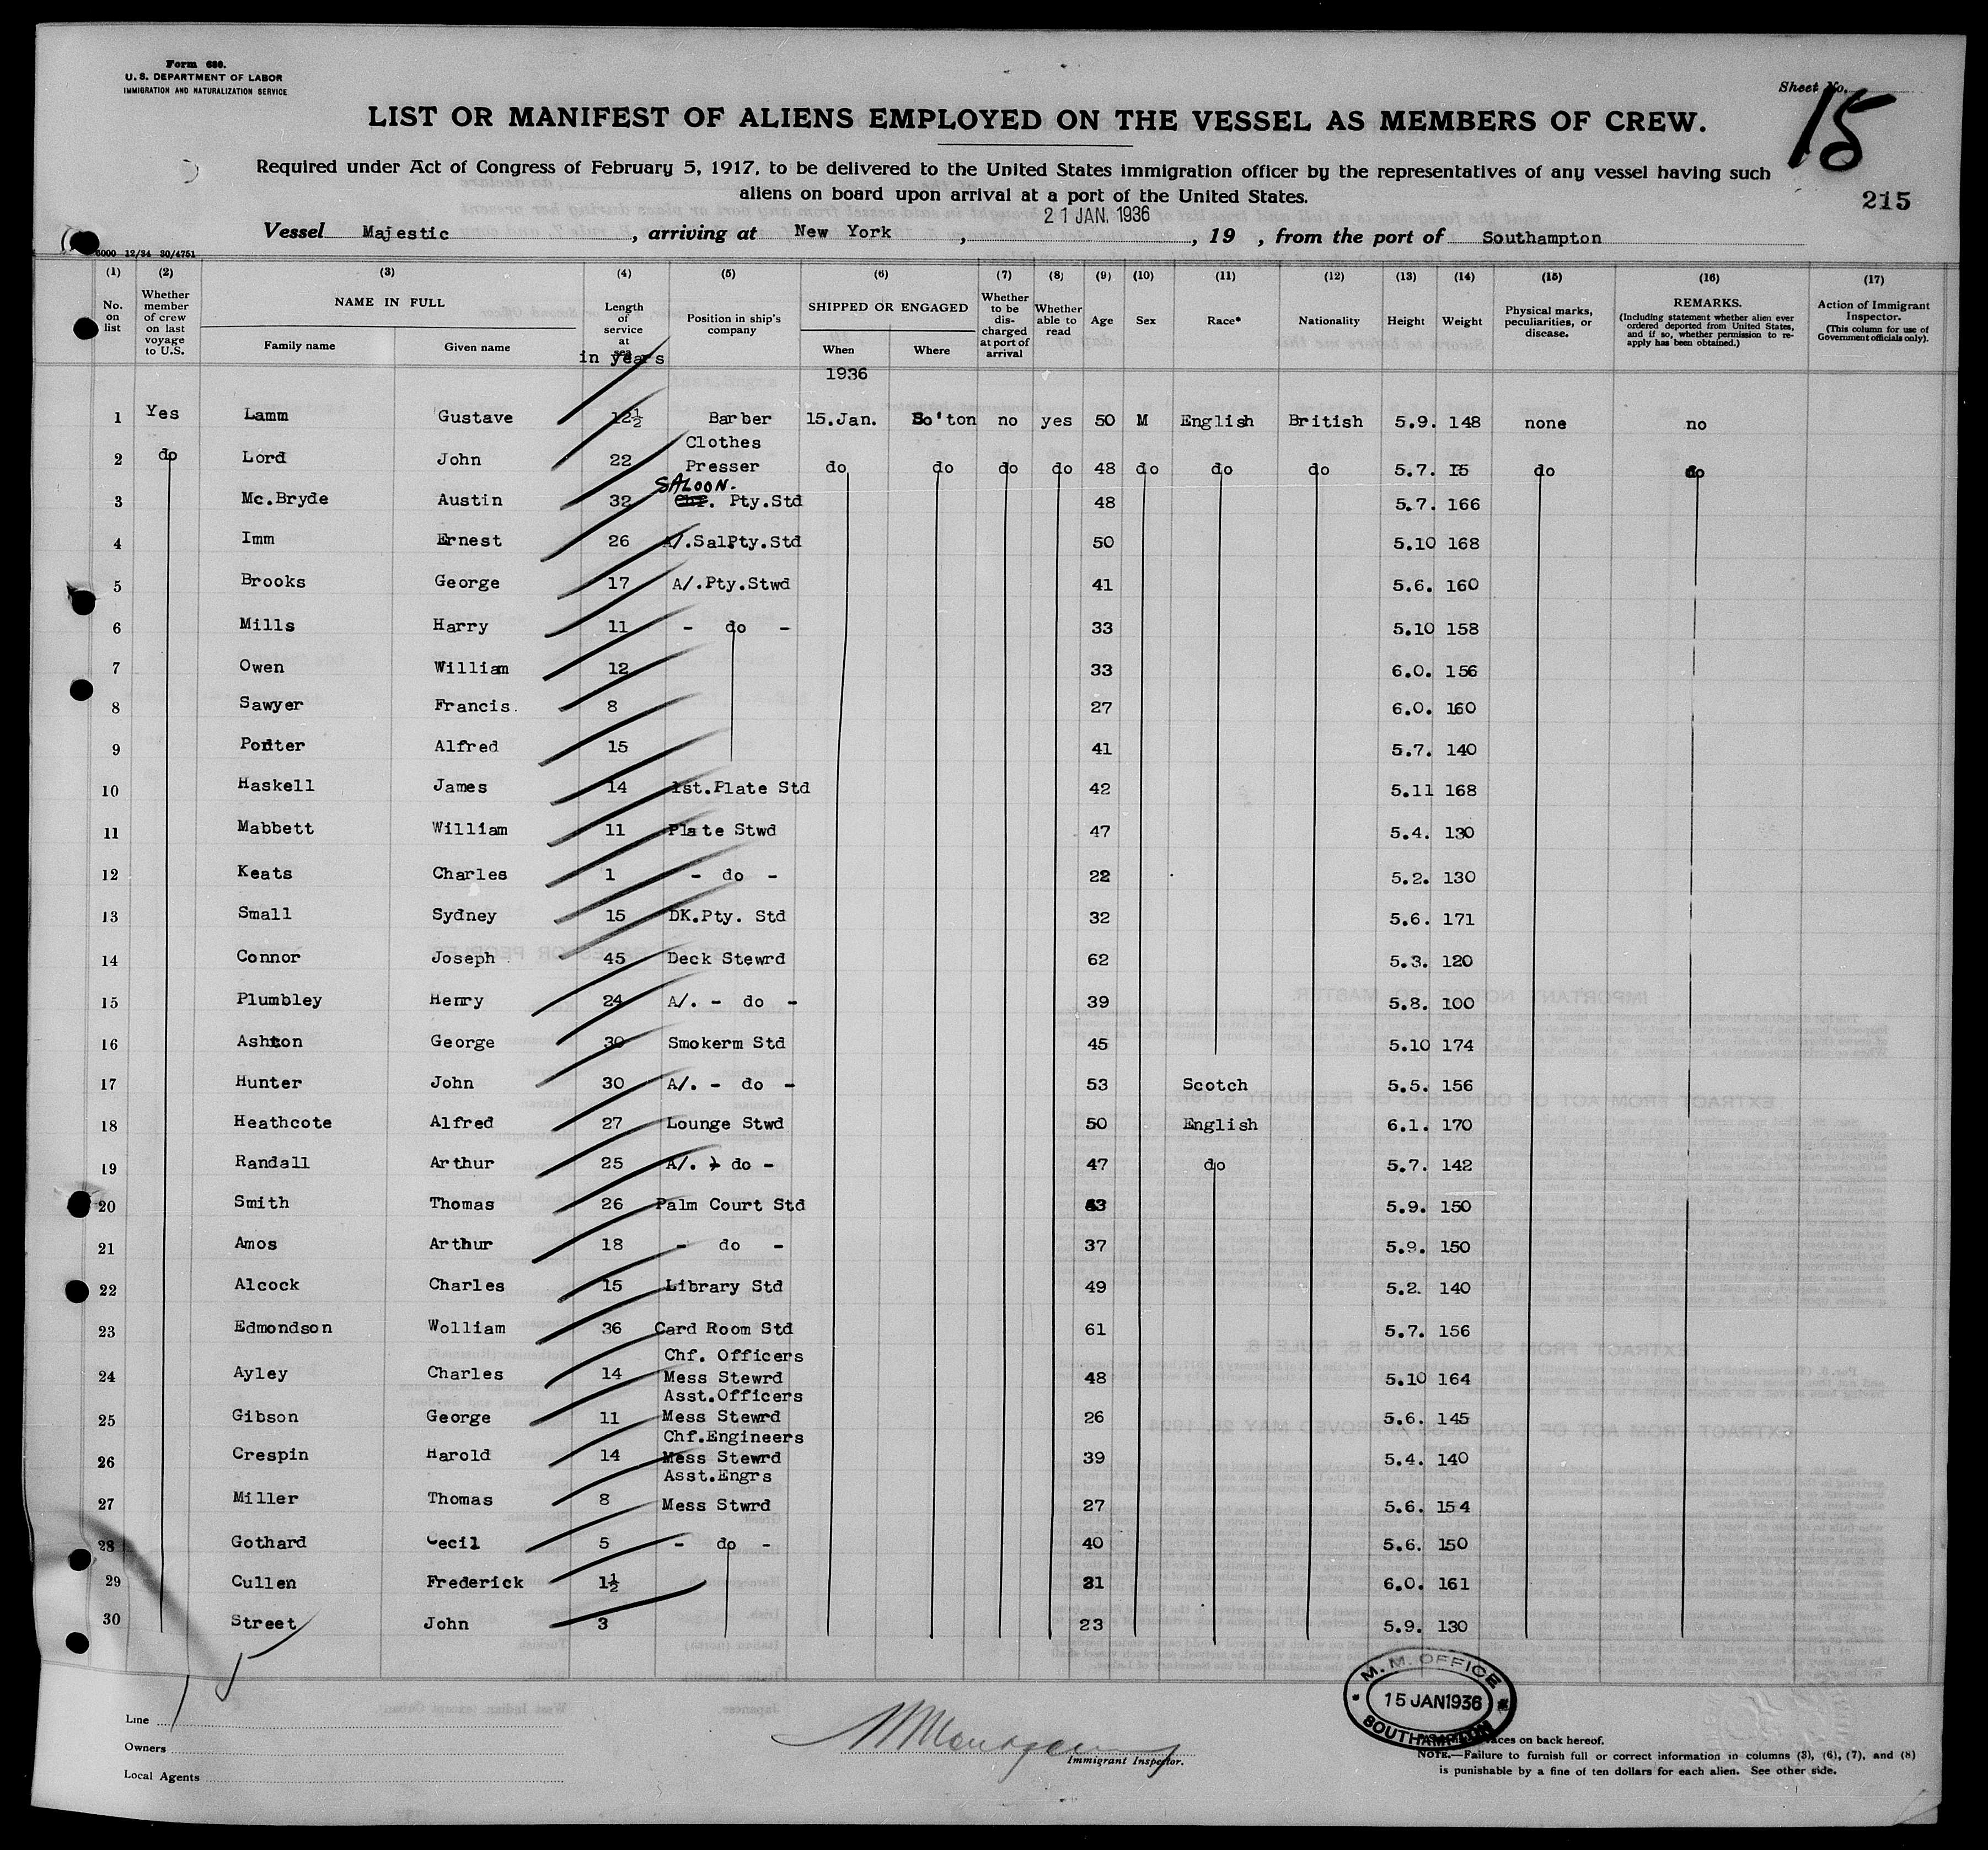 Form 680.
U. S. DEPARTMENT OF LABOR
IMMIGRATION AND NATURALIZATION SERVICE
Sheet No. 15
LIST OR MANIFEST OF ALIENS EMPLOYED ON THE VESSEL AS MEMBERS OF CREW.
Required under Act of Congress of February 5, 1917, to be delivered to the United States immigration officer by the representatives of any vessel having such
aliens on board upon arrival at a port of the United States.
215
21 JAN. 1936
Vessel Majestic, arriving at New York, , 19 , from the port of Southampton
6000 12/34 30/4751
(1) (2) (3) (4) (5) (6) (7) (8) (9) (10) (11) (12) (13) (14) (15) (16) (17)
No. on list
Whether member of crew on last voyage to U.S.
NAME IN FULL
Family name Given name
Length of service at sea
in years
Position in ship's company
SHIPPED OR ENGAGED
When Where
1936
Whether to be discharged at port of arrival
Whether able to read
Age Sex Race* Nationality Height Weight
Physical marks, peculiarities, or disease.
REMARKS.
(Including statement whether alien ever ordered deported from United States, and if so, whether permission to re-apply has been obtained.)
Action of Immigrant Inspector.
(This column for use of Government officials only).
1 Yes Lamm Gustave 12½ Barber 15.Jan. So'ton no yes 50 M English British 5.9. 148 none no
2 do Lord John 22 Clothes Presser do do do do 48 do do do 5.7. 15 do do
3 Mc.Bryde Austin 32 SALOON. Pty.Std 48 5.7. 166
4 Imm Ernest 26 A/.SalPty.Std 50 5.10 168
5 Brooks George 17 A/.Pty.Stwd 41 5.6. 160
6 Mills Harry 11 - do - 33 5.10 158
7 Owen William 12 33 6.0. 156
8 Sawyer Francis. 8 27 6.0. 160
9 Porter Alfred 15 41 5.7. 140
10 Haskell James 14 1st.Plate Std 42 5.11 168
11 Mabbett William 11 Plate Stwd 47 5.4. 130
12 Keats Charles 1 - do - 22 5.2. 130
13 Small Sydney 15 DK.Pty. Std 32 5.6. 171
14 Connor Joseph 45 Deck Stewrd 62 5.3. 120
15 Plumbley Henry 24 A/. - do - 39 5.8. 100
16 Ashton George 30 Smokerm Std 45 5.10 174
17 Hunter John 30 A/. - do - 53 Scotch 5.5. 156
18 Heathcote Alfred 27 Lounge Stwd 50 English 6.1. 170
19 Randall Arthur 25 A/. - do - 47 do 5.7. 142
20 Smith Thomas 26 Palm Court Std 5.9. 150
21 Amos Arthur 18 - do - 37 5.9. 150
22 Alcock Charles 15 Library Std 49 5.2. 140
23 Edmondson Wolliam 36 Card Room Std 61 5.7. 156
24 Ayley Charles 14 Chf. Officers Mess Stewrd 48 5.10 164
25 Gibson George 11 Asst.Officers Mess Stewrd 26 5.6. 145
26 Crespin Harold 14 Chf.Engineers Mess Stewrd 39 5.4. 140
27 Miller Thomas 8 Asst.Engrs Mess Stwrd 27 5.6. 154
28 Gothard Cecil 5 - do - 40 5.6. 150
29 Cullen Frederick 1½ 31 6.0. 161
30 Street John 3 23 5.9. 130
Line
Owners
Local Agents
Immigrant Inspector.
M. M. OFFICE
15 JAN 1936
SOUTHAMPTON
races on back hereof.
NOTE.—Failure to furnish full or correct information in columns (3), (6), (7), and (8)
is punishable by a fine of ten dollars for each alien. See other side.